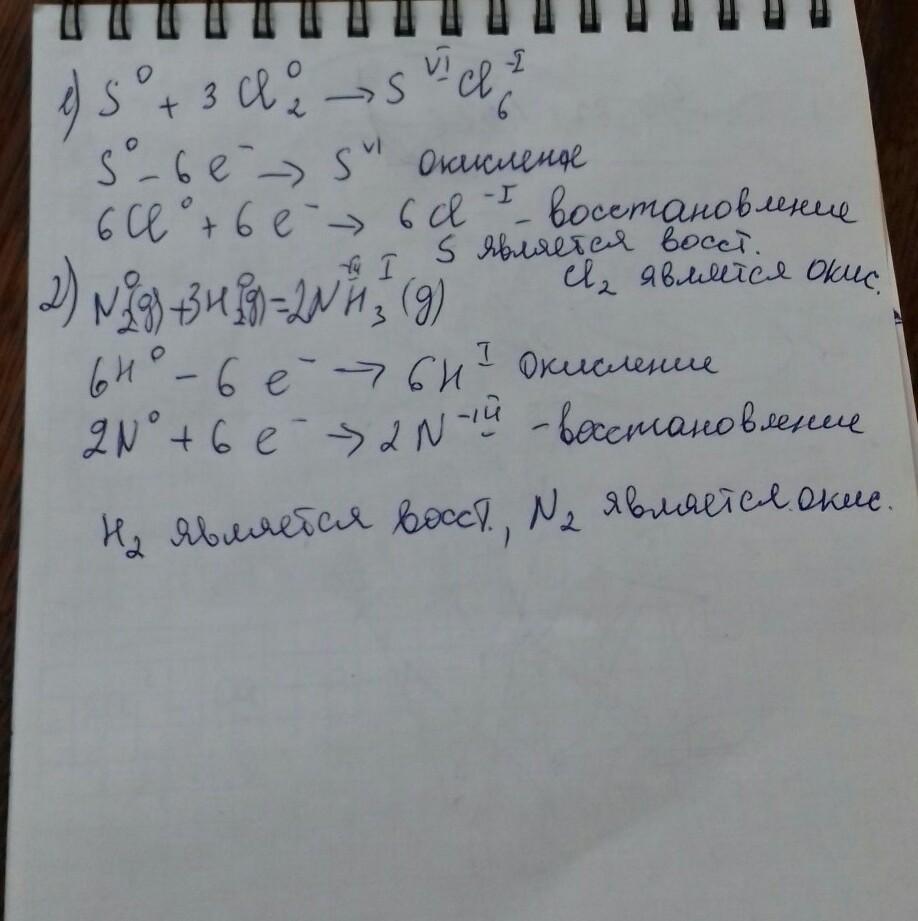 1) S⁰ + 3Cl₂⁰ → S^VI Cl₆^-I
S⁰ - 6e⁻ → S^VI окисление
6Cl⁰ + 6e⁻ → 6Cl^-I - восстановление
S является восст.
Cl₂ является окис.
2) N₂⁰(g) + 3H₂⁰(g) = 2N^-III H₃^I (g)
6H⁰ - 6e⁻ → 6H^I окисление
2N⁰ + 6e⁻ → 2N^-III - восстановление
H₂ является восст., N₂ является окис.